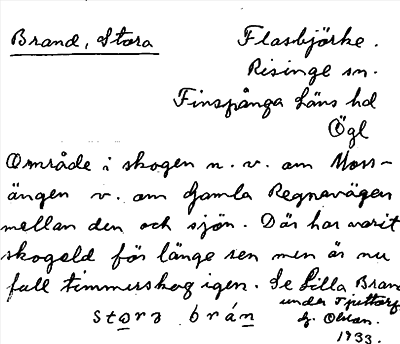 Brand, Stora
Flasbjörke.
Risinge sn.
Finspånga läns hd
Ögl
Område i skogen n. v. om Moss-
ängen v. om Gamla Regnavägen
mellan den och sjön. Där har varit
skogseld för länge sen men är nu
full timmerskog igen. Se Lilla Brand
under
stora brán
G. Olsson.
1933.